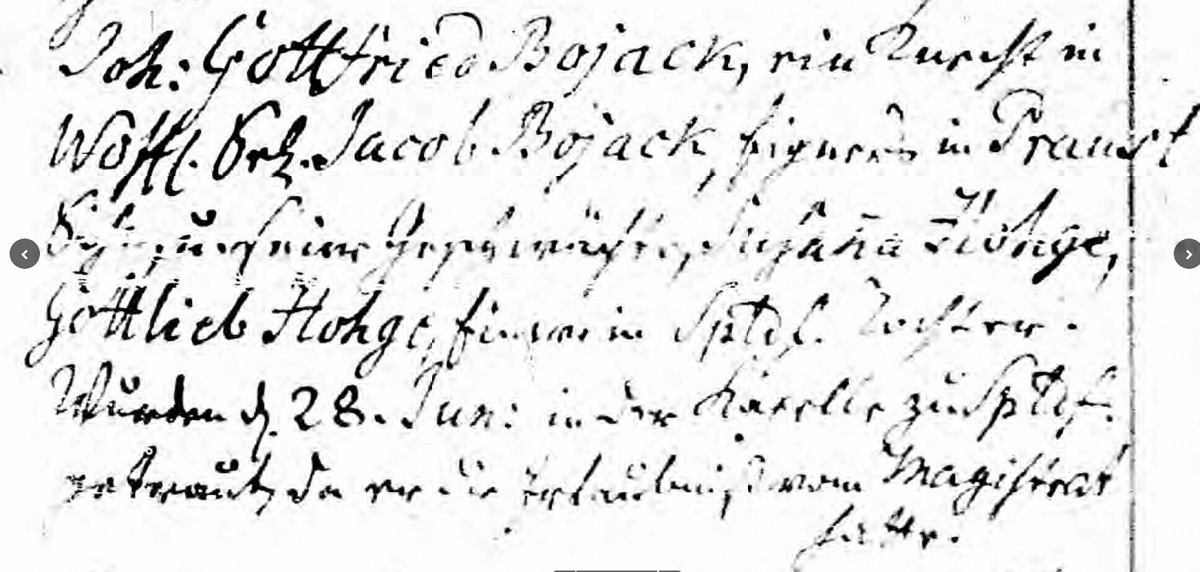 Joh: Gottfried Bojack, ein Knecht in
Wößl. Jacob Bojack, Eigners in Praust
Sohn, u. seine Geschwächte, Susaña Hohge,
Gottlieb Hohge, Eigner in Sptdf. Tochter.
Wurden d. 28. Jun: in der Kapelle zu Sptdf.
getraut, da er die Erlaubniß vom Magistrat
hatte.